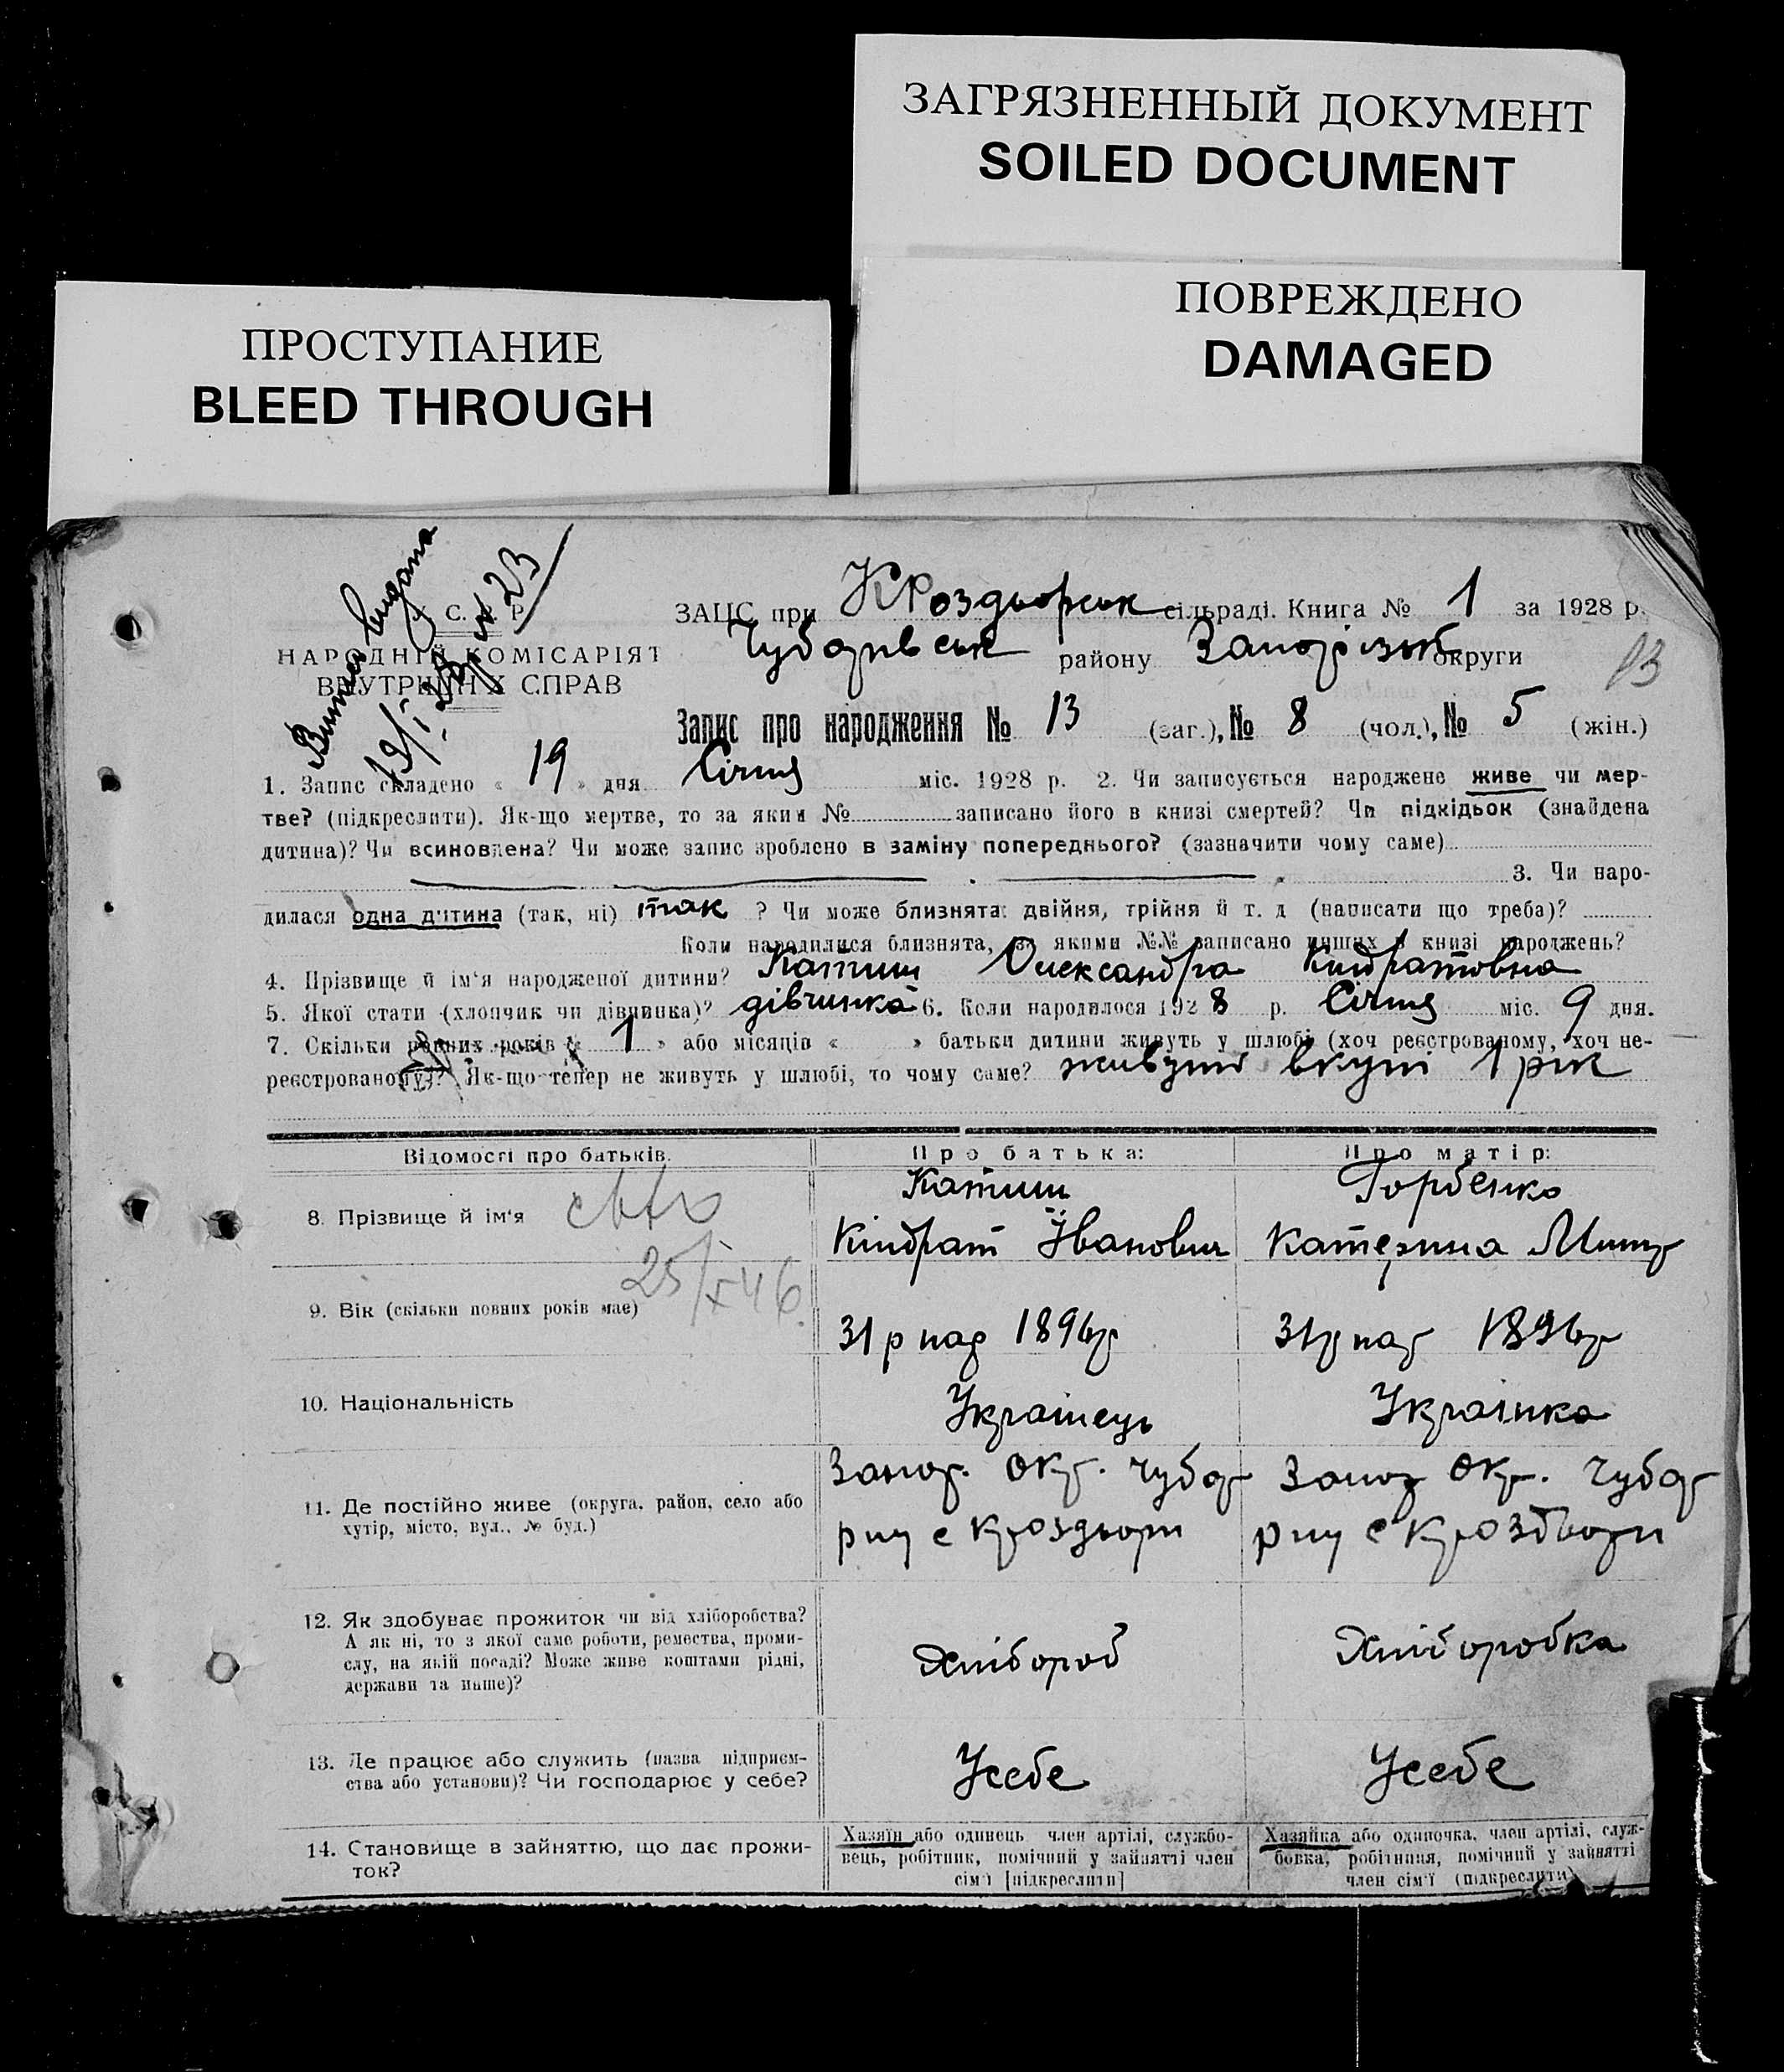 ЗАГРЯЗНЕННЫЙ ДОКУМЕНТ
SOILED DOCUMENT
ПОВРЕЖДЕНО
DAMAGED
ПРОСТУПАНИЕ
BLEED THROUGH
видана
19/I 28 р № 23
У. С. Р. Р.
НАРОДНІЙ КОМІСАРІЯТ
ВНУТРІШНІХ СПРАВ
ЗАЦС при КРоздорськ сільраді. Книга № 1 за 1928 р.
Чубарівськ району Запорізьк округи
13
Запис про народження № 13 (заг.), № 8 (чол.), № 5 (жін.)
1. Запис складено « 19 » дня Січня міс. 1928 р. 2. Чи записується народжене живе чи мер-
тве? (підкреслити). Як-що мертве, то за яким № записано його в книзі смертей? Чи підкідьок (знайдена
дитина)? Чи всиновлена? Чи може запис зроблено в заміну попереднього? (зазначити чому саме)
3. Чи наро-
дилася одна дитина (так, ні) так ? Чи може близнята: двійня, трійня й т. д (написати що треба)?
Коли народилися близнята, за якими №№ записано инших в книзі народжень?
4. Прізвище й ім'я народженої дитини? Катиш Олександра Кіндратовна
5. Якої стати (хлопчик чи дівчинка)? дівчинка 6. Коли народилося 1928 р. Січня міс. 9 дня.
7. Скільки повних років « 1 » або місяців « » батьки дитини живуть у шлюбі (хоч реєстрованому, хоч не-
реєстрованому)? Як-що тепер не живуть у шлюбі, то чому саме? живуть вкупі 1 рік
Відомості про батьків. Про батька: Про матір:
8. Прізвище й ім'я Катиш Горбенко
Кіндрат Іванович Катерина Митр
25/X 46
9. Вік (скільки повних років має) 31 р нар 1896р 31р нар 1896р
10. Національність Українець Українка
11. Де постійно живе (округа, район, село або Запор. Окр. Чубар Запор Окр. Чубар
хутір, місто, вул., № буд.) рну с Кроздори рну с Кроздори
12. Як здобуває прожиток чи від хліборобства?
А як ні, то з якої саме роботи, ремества, проми-
слу, на якій посаді? Може живе коштами рідні, Хлібороб Хліборобка
держави та инше)?
13. Де працює або служить (назва підприєм-
ства або установи)? Чи господарює у себе? Усебе Усебе
14. Становище в зайняттю, що дає прожи-
ток?
Хазяїн або одинець член артілі, службо-
вець, робітник, помічний у зайнятті член
сім'ї [підкреслити]
Хазяйка або одиночка, член артілі, служ-
бовка, робітниця, помічний у зайнятті
член сім'ї (підкреслити)